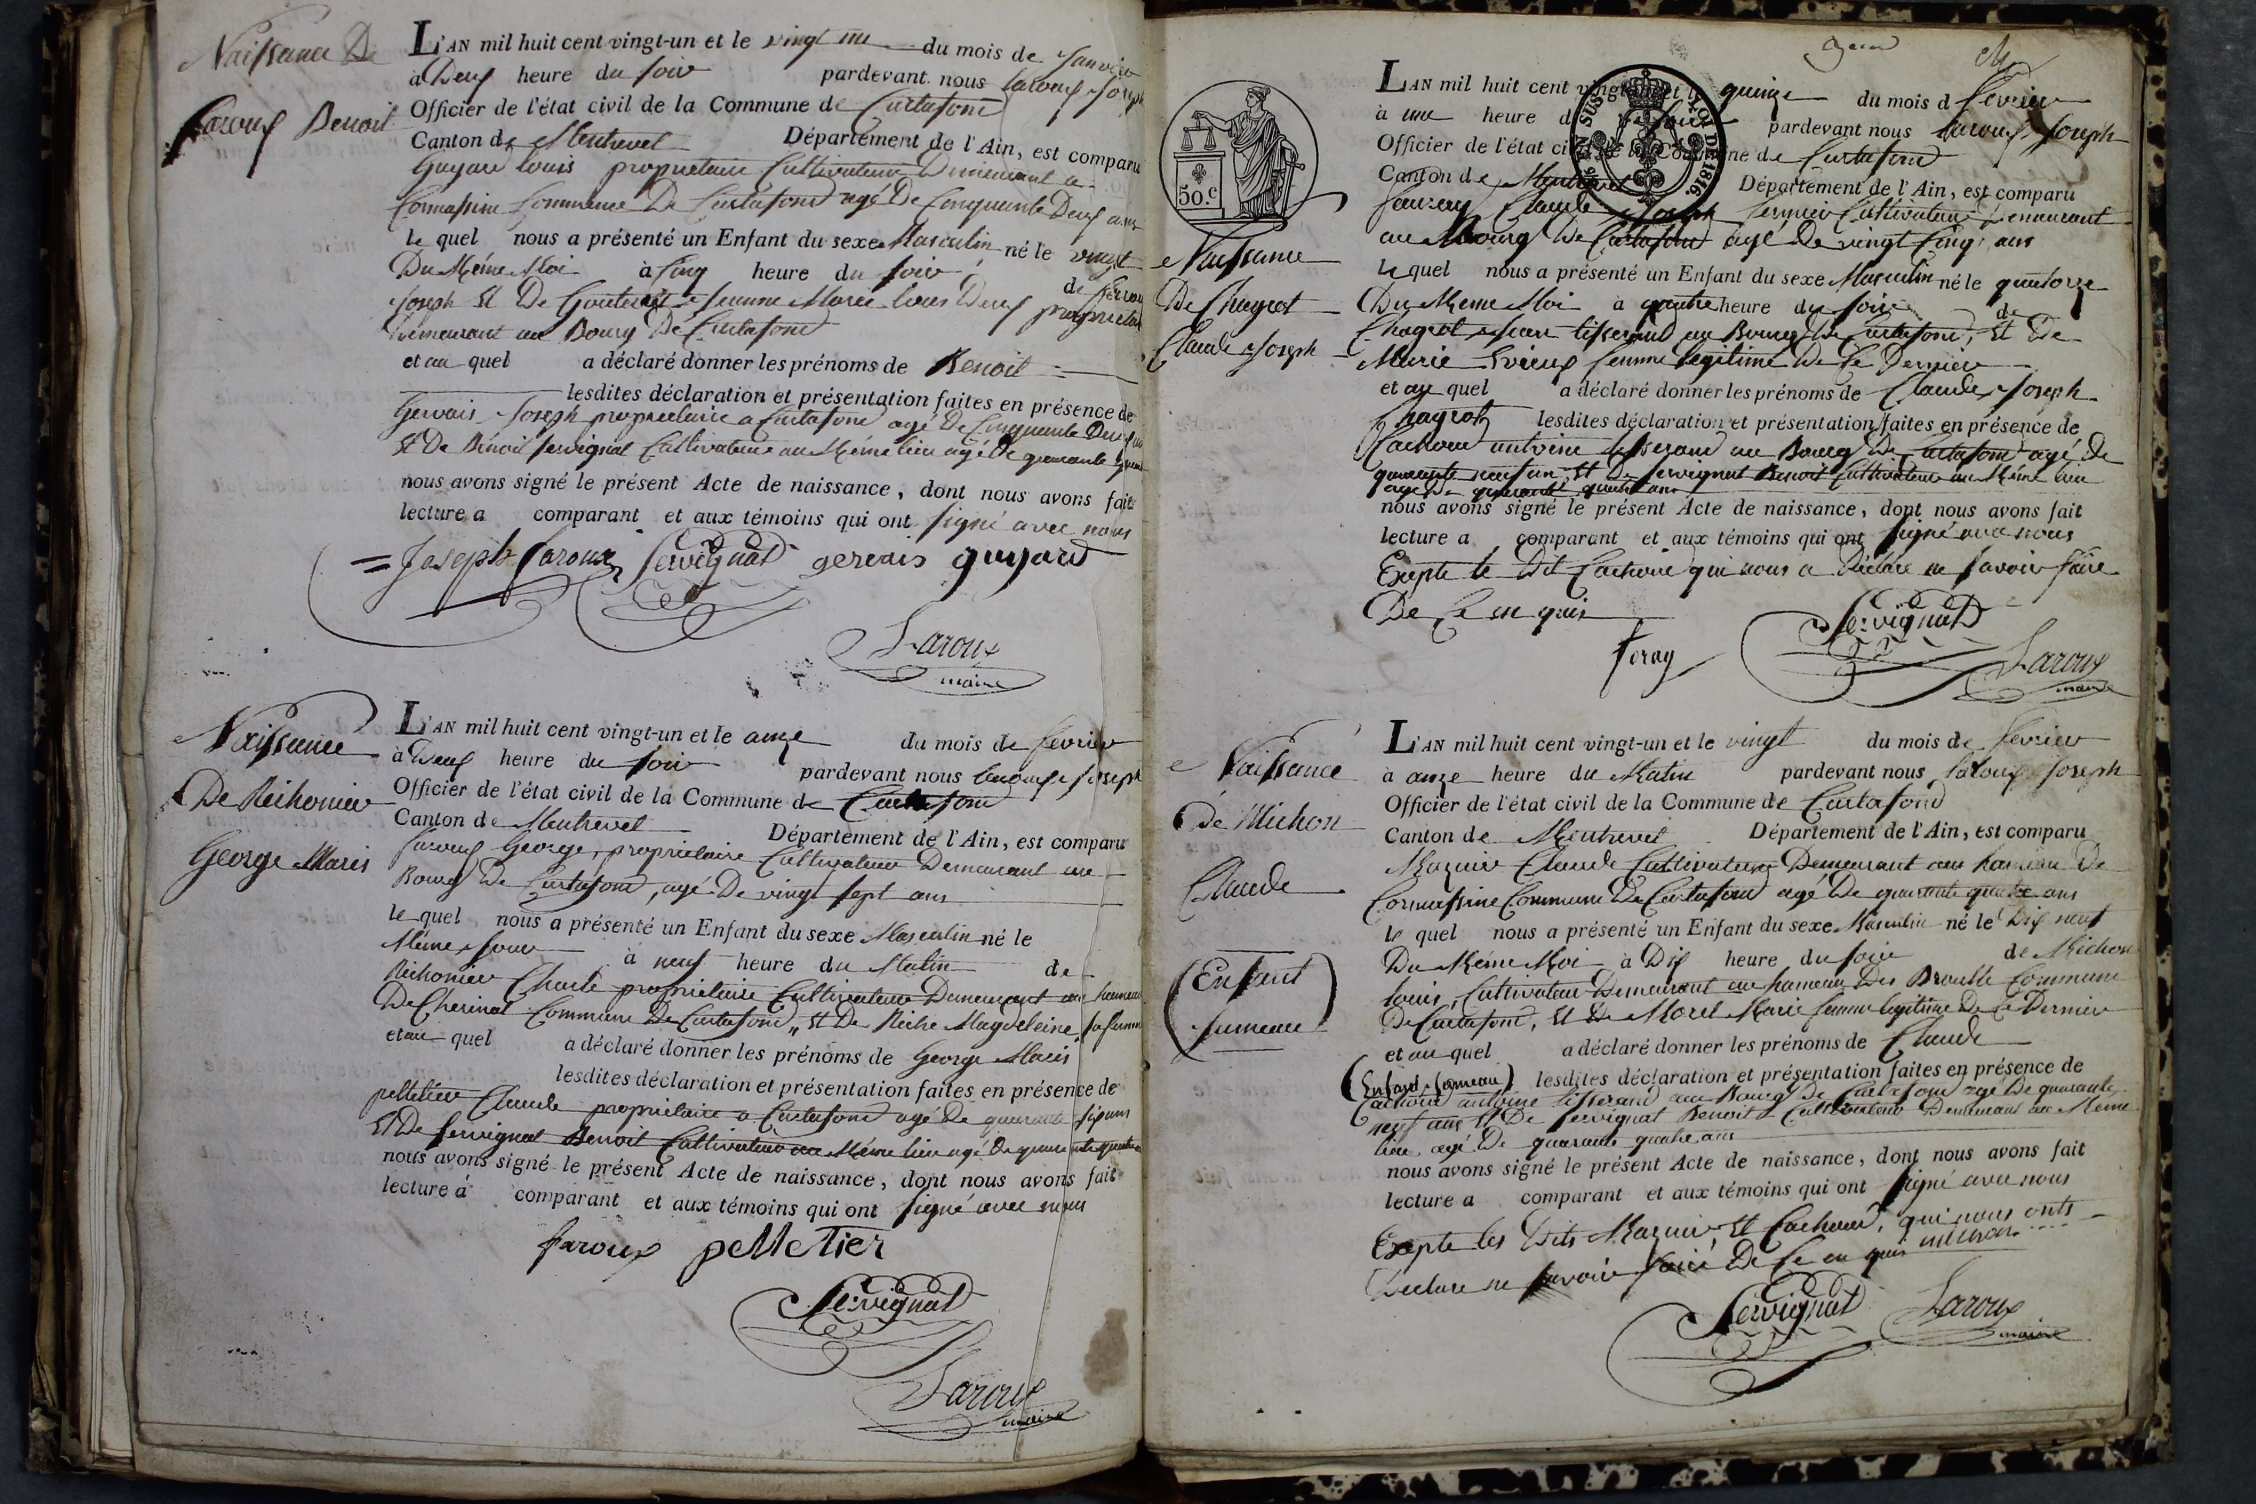 Naissance De
Laroux Benoit
L'AN mil huit cent vingt-un et le vingt un du mois de Janvier
à Deux heure du soir pardevant nous Laroux Joseph
Officier de l'état civil de la Commune de Curtafond
Canton de Montrevel Département de l'Ain, est comparu
Guyard Louis proprietaire Cultivateur Demeurant a
Cornassine Commune De Curtafond agé De Cinquante Deux ans
le quel nous a présenté un Enfant du sexe Masculin né le vingt
Du Méme Moi à Cinq heure du soir de Laroux
Joseph Et De Femme Marie Deux proprietai
Demeurant au Bourg De Curtafond
et au quel a déclaré donner les prénoms de Benoit
lesdites déclaration et présentation faites en présence de
Gervais Joseph proprietaire a Curtafond agé De Cinquante Deux
Et De Bénoit Servignat Cultivateur au Méme lieu agé De quarante
nous avons signé le présent Acte de naissance, dont nous avons fait
lecture a comparant et aux témoins qui ont signé avec nous
Joseph Laroux Servignat gervais guyard
Laroux
maire
Naissance
De Réthonier
George Marie
L'AN mil huit cent vingt-un et le onze du mois de fevrier
à Deux heure du soir pardevant nous Laroux Joseph
Officier de l'état civil de la Commune de Curtafond
Canton de Montrevel Département de l'Ain, est comparu
Laroux George, proprietaire Cultivateur Demeurant au
Bourg De Curtafond, agé De vingt sept ans
le quel nous a présenté un Enfant du sexe Masculin né le
Méme Jour à neuf heure du Matin de
Charle proprietaire Cultivateur Demeurant au hameau
De Commune De Curtafond, Et De Magdeleine, sa femme
et au quel a déclaré donner les prénoms de George Marie
lesdites déclaration et présentation faites en présence de
pelletier Claude proprietaire a Curtafond agé De quarante six ans
Et De Servignat Benoit Cultivateur au Méme lieu agé De quarante quatre
nous avons signé le présent Acte de naissance, dont nous avons fait
lecture á comparant et aux témoins qui ont signé avec nous
Laroux pelletier
Servignat
Laroux
maire
50.c
EN SUS
LOI DE 1816.
Naissance
De Chagrot
Claude Joseph
L'AN mil huit cent vingt-un et le quinze du mois d fevrier
à une heure du soir pardevant nous Laroux Joseph
Officier de l'état civil de la Commune de Curtafond
Canton de Montrevel Département de l'Ain, est comparu
Claude Joseph Cultivateur Demeurant
au Bourg De Curtafond agé De vingt Cinq ans
le quel nous a présenté un Enfant du sexe Masculin né le quatorze
Du Méme Moi à quatre heure du soir de
Chagrot Jean tisserand au Bourg De Curtafond, Et De
Marie femme legitime De Ce Dernier
et au quel a déclaré donner les prénoms de Claude Joseph
Chagrot lesdites déclaration et présentation faites en présence de
Cachoud antoine tisserand au Bourg De Curtafond agé De
quarante neuf ans Et De Servignat Benoit Cultivateur au Méme lieu
agé De quarante quatre ans
nous avons signé le présent Acte de naissance, dont nous avons fait
lecture a comparant et aux témoins qui ont signé avec nous
Exepte le Dit Cachoud qui nous a Déclare ne savoir faire
De Ce en quis
feray
Servignat
Laroux
maire
Naissance
de Michon
Claude
(Enfant
Jumeau)
L'AN mil huit cent vingt-un et le vingt du mois de fevrier
à onze heure du Matin pardevant nous Laroux Joseph
Officier de l'état civil de la Commune de Curtafond
Canton de Montrevel Département de l'Ain, est comparu
Mazuir Claude Cultivateur Demeurant au hameau De
Cornassine Commune De Curtafond agé De quarante quatre ans
le quel nous a présenté un Enfant du sexe Masculin né le Dix neuf
Du Méme Moi à Dix heure du soir de Michon
Louis, Cultivateur Demeurant au hameau Des Commune
De Curtafond, Et De Morel Marie femme legitime De Ce Dernier
et au quel a déclaré donner les prénoms de Claude
(Enfant Jumeau) lesdites déclaration et présentation faites en présence de
Cachoud antoine tisserand au Bourg De Curtafond agé De quarante
neuf ans Et De Servignat Benoit Cultivateur Demeurant au Méme
lieu agé De quarante quatre ans
nous avons signé le présent Acte de naissance, dont nous avons fait
lecture a comparant et aux témoins qui ont signé avec nous
Exepte les Dits Mazuir, Et Cachoud, qui nous onts
Déclare ne savoir faire De Ce en quis
Servignat
Laroux
maire